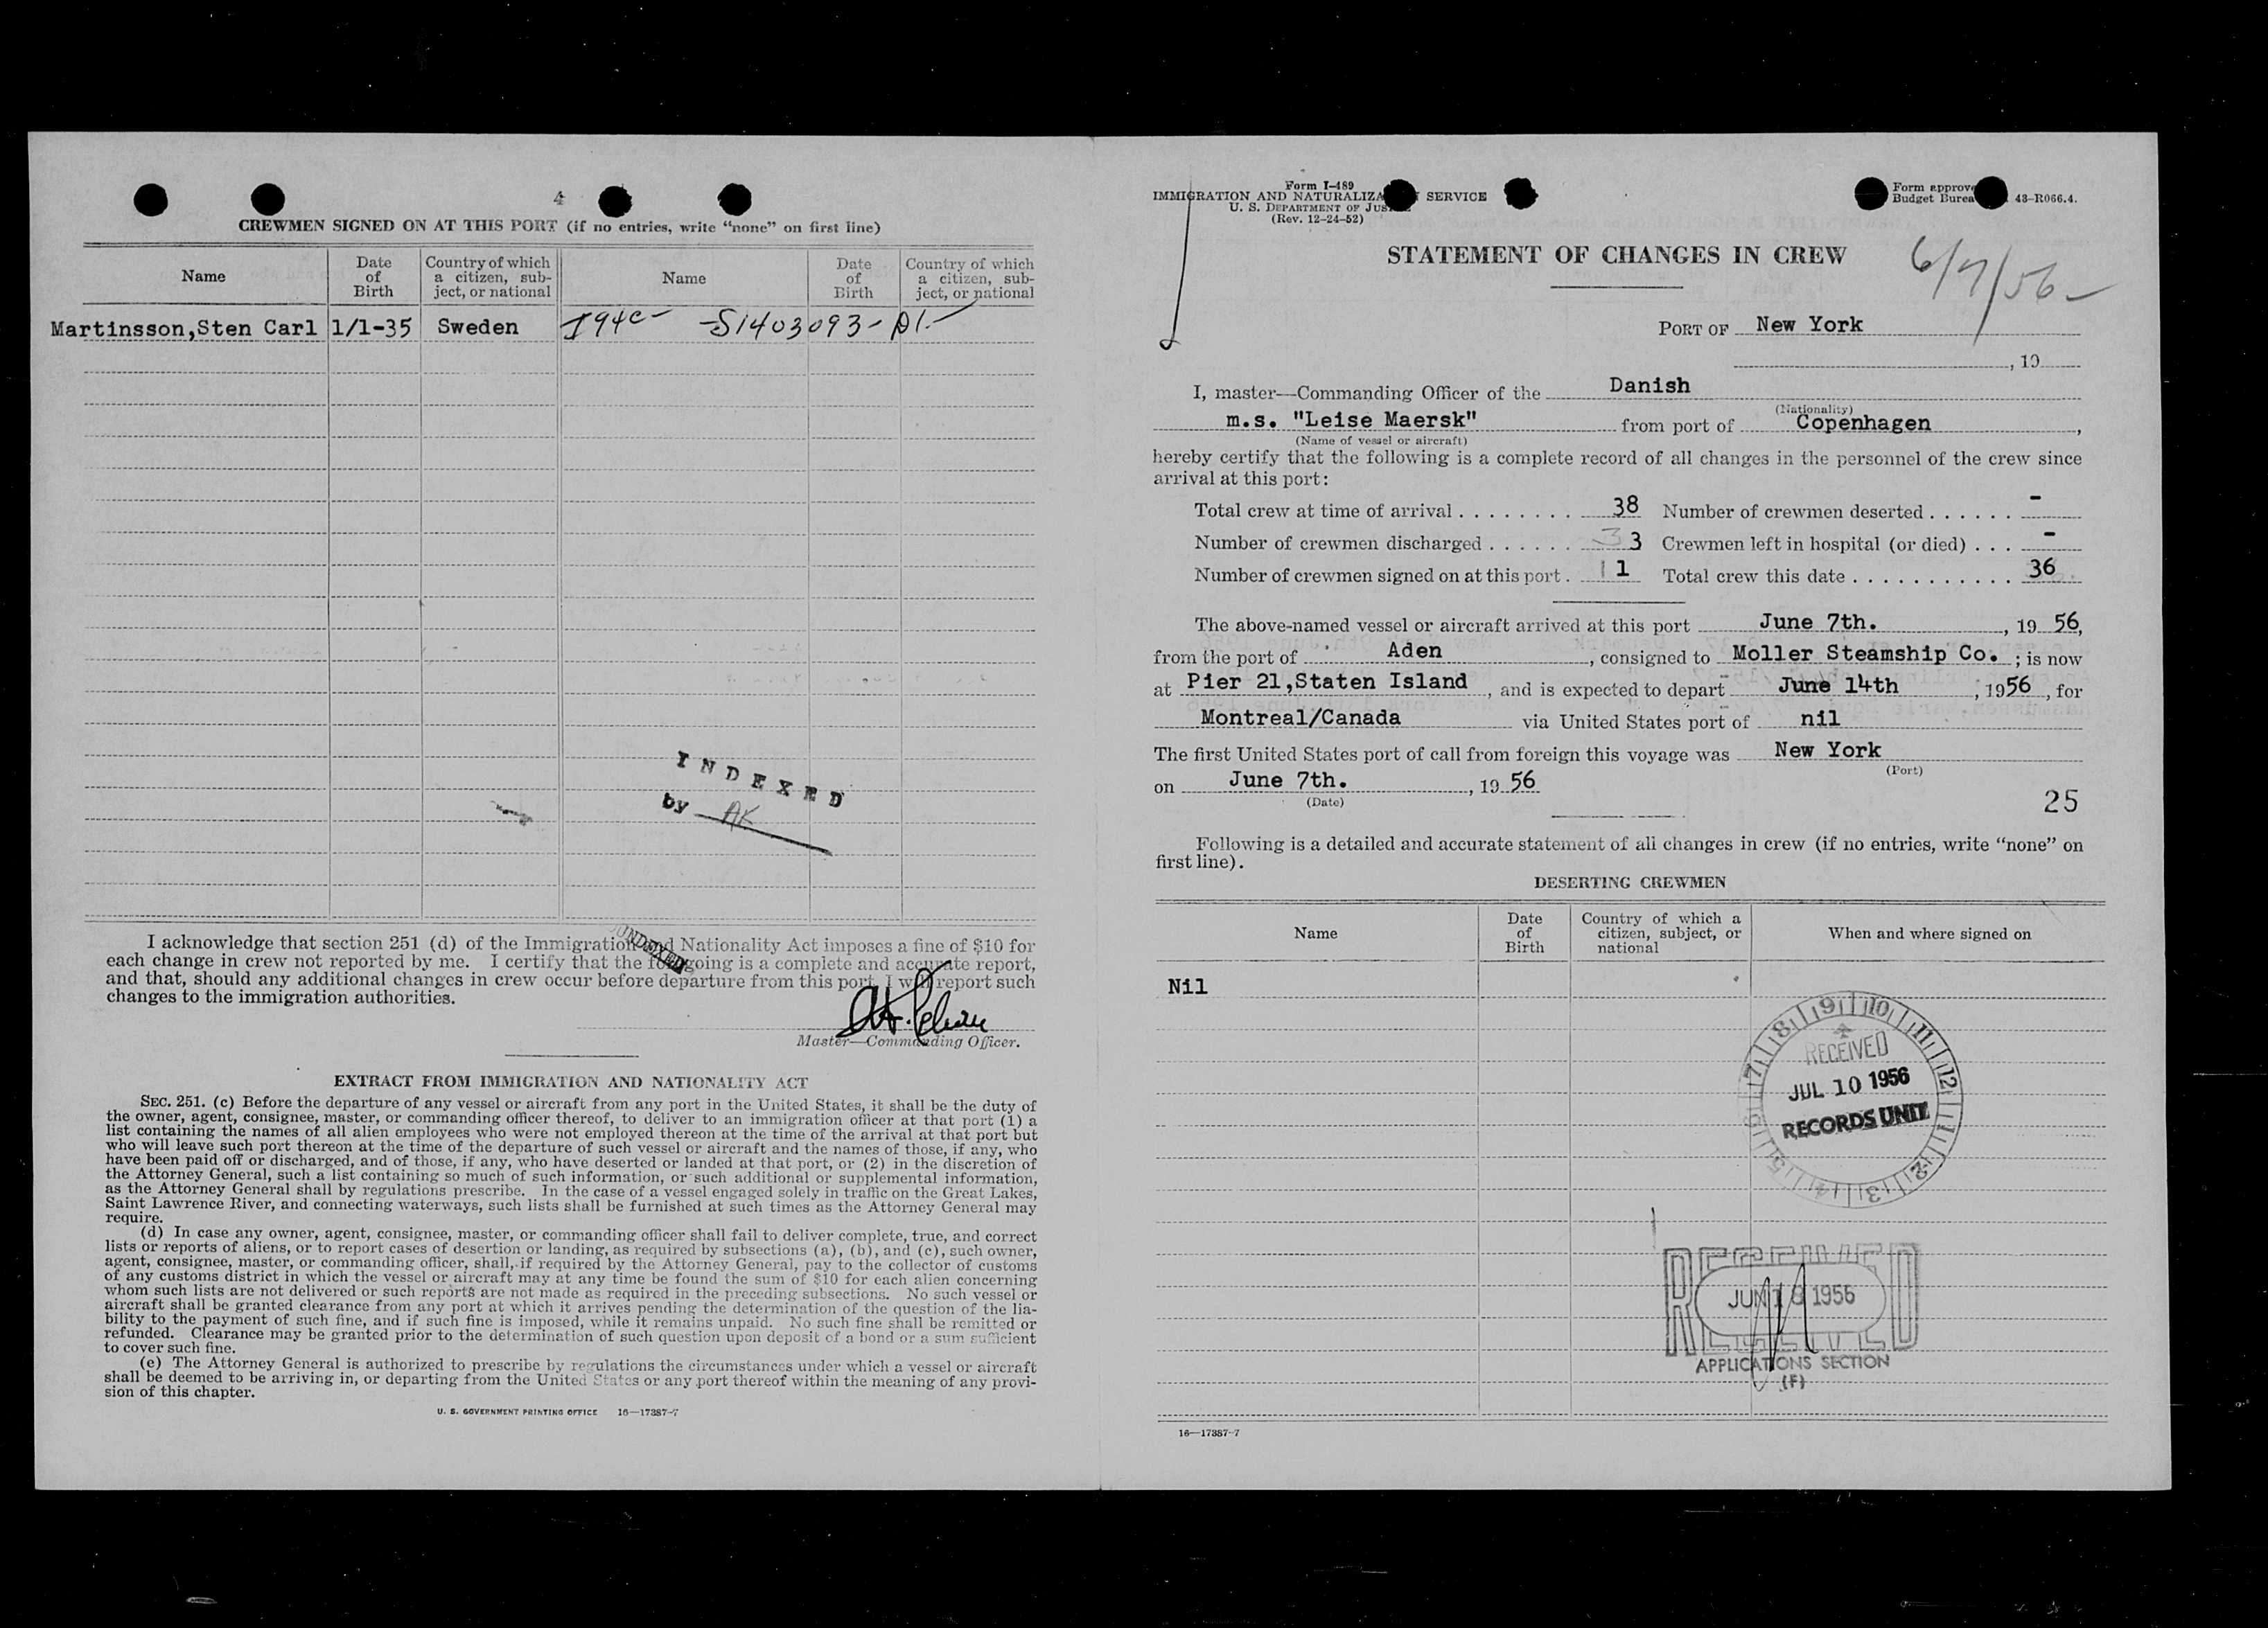 4
CREWMEN SIGNED ON AT THIS PORT (if no entries, write “none” on first line)
Name Date of Birth Country of which a citizen, sub- ject, or national Name Date of Birth Country of which a citizen, sub- ject, or national
Martinsson,Sten Carl 1/1-35 Sweden I94C- -S1403093-D1.-
INDEXED
by AK
I acknowledge that section 251 (d) of the Immigration and Nationality Act imposes a fine of $10 for
each change in crew not reported by me. I certify that the foregoing is a complete and accurate report,
and that, should any additional changes in crew occur before departure from this port, I will report such
changes to the immigration authorities.
Master—Commanding Officer.
EXTRACT FROM IMMIGRATION AND NATIONALITY ACT
SEC. 251. (c) Before the departure of any vessel or aircraft from any port in the United States, it shall be the duty of
the owner, agent, consignee, master, or commanding officer thereof, to deliver to an immigration officer at that port (1) a
list containing the names of all alien employees who were not employed thereon at the time of the arrival at that port but
who will leave such port thereon at the time of the departure of such vessel or aircraft and the names of those, if any, who
have been paid off or discharged, and of those, if any, who have deserted or landed at that port, or (2) in the discretion of
the Attorney General, such a list containing so much of such information, or such additional or supplemental information,
as the Attorney General shall by regulations prescribe. In the case of a vessel engaged solely in traffic on the Great Lakes,
Saint Lawrence River, and connecting waterways, such lists shall be furnished at such times as the Attorney General may
require.
(d) In case any owner, agent, consignee, master, or commanding officer shall fail to deliver complete, true, and correct
lists or reports of aliens, or to report cases of desertion or landing, as required by subsections (a), (b), and (c), such owner,
agent, consignee, master, or commanding officer, shall, if required by the Attorney General, pay to the collector of customs
of any customs district in which the vessel or aircraft may at any time be found the sum of $10 for each alien concerning
whom such lists are not delivered or such reports are not made as required in the preceding subsections. No such vessel or
aircraft shall be granted clearance from any port at which it arrives pending the determination of the question of the lia-
bility to the payment of such fine, and if such fine is imposed, while it remains unpaid. No such fine shall be remitted or
refunded. Clearance may be granted prior to the determination of such question upon deposit of a bond or a sum sufficient
to cover such fine.
(e) The Attorney General is authorized to prescribe by regulations the circumstances under which a vessel or aircraft
shall be deemed to be arriving in, or departing from the United States or any port thereof within the meaning of any provi-
sion of this chapter.
U. S. GOVERNMENT PRINTING OFFICE 16—17387-7
Form I-489
IMMIGRATION AND NATURALIZA SERVICE
U. S. DEPARTMENT OF JUS
(Rev. 12-24-52)
Form approve
Budget Burea 43-R066.4.
STATEMENT OF CHANGES IN CREW
6/7/56-
PORT OF New York
, 19
I, master—Commanding Officer of the Danish
(Nationality)
m.s. "Leise Maersk" from port of Copenhagen,
(Name of vessel or aircraft)
hereby certify that the following is a complete record of all changes in the personnel of the crew since
arrival at this port:
Total crew at time of arrival . . . . . . . . 38 Number of crewmen deserted . . . . . . -
Number of crewmen discharged . . . . . . 3 3 Crewmen left in hospital (or died) . . . -
Number of crewmen signed on at this port . 1 1 Total crew this date . . . . . . . . . . . 36
The above-named vessel or aircraft arrived at this port June 7th. , 19 56,
from the port of Aden , consigned to Moller Steamship Co. ; is now
at Pier 21,Staten Island , and is expected to depart June 14th , 1956 , for
Montreal/Canada via United States port of nil
The first United States port of call from foreign this voyage was New York
(Port)
on June 7th. , 19 56
(Date)
25
Following is a detailed and accurate statement of all changes in crew (if no entries, write “none” on
first line).
DESERTING CREWMEN
Name Date of Birth Country of which a citizen, subject, or national When and where signed on
Nil
7 8 9 10 11 12 1 2 3 4 5 6
RECEIVED
JUL 10 1956
RECORDS UNIT
RECEIVED
JUN 18 1956
RECEIVED
APPLICATIONS SECTION
(F)
16—17387-7